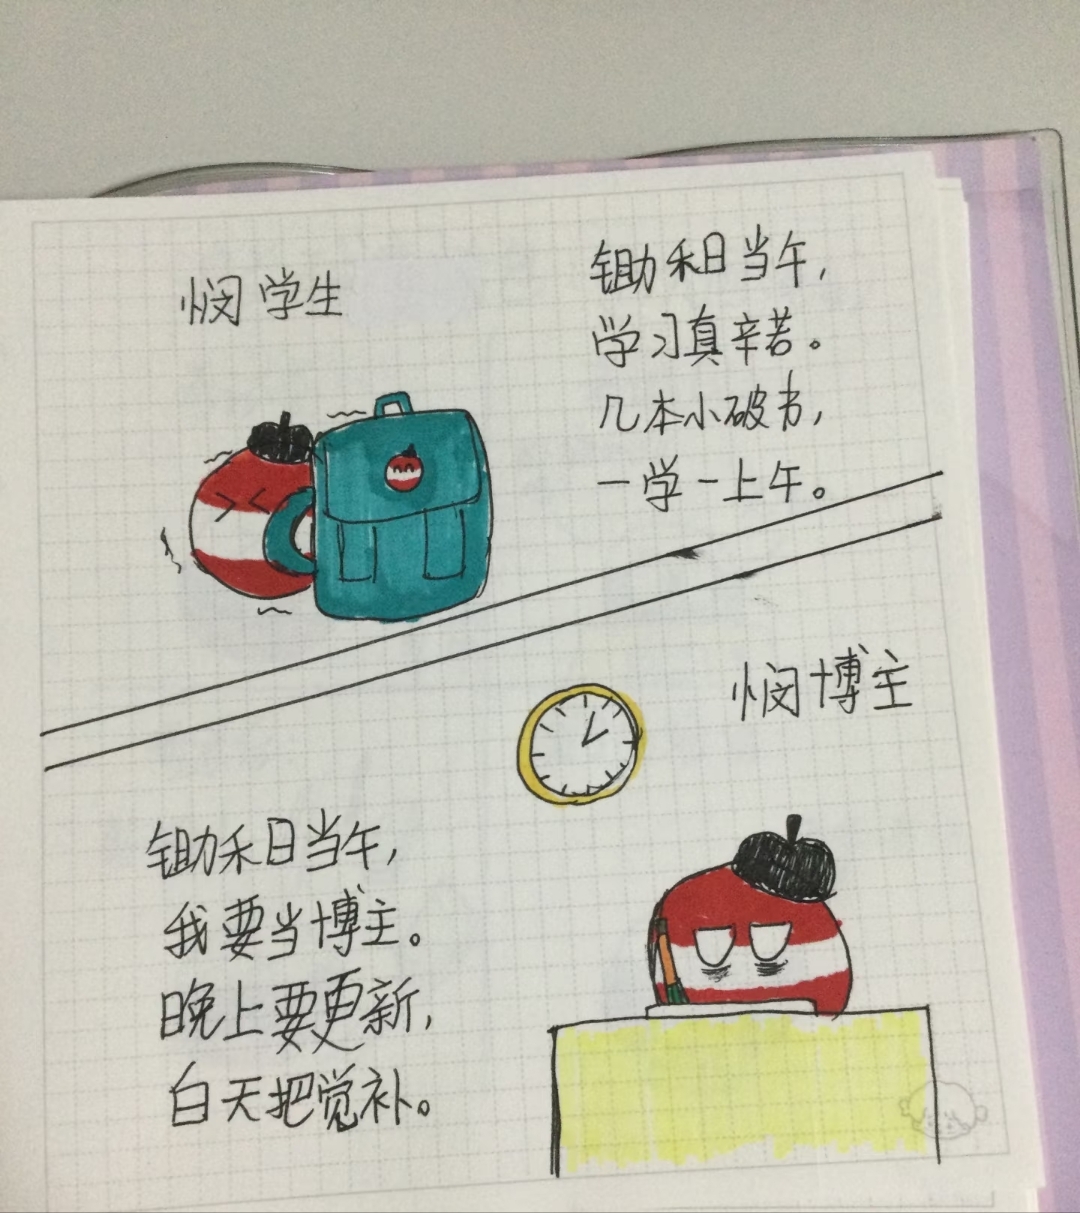 悯学生
锄禾日当午，
学习真辛苦。
几本小破书，
一学一上午。
悯博主
锄禾日当午，
我要当博主。
晚上要更新，
白天把觉补。